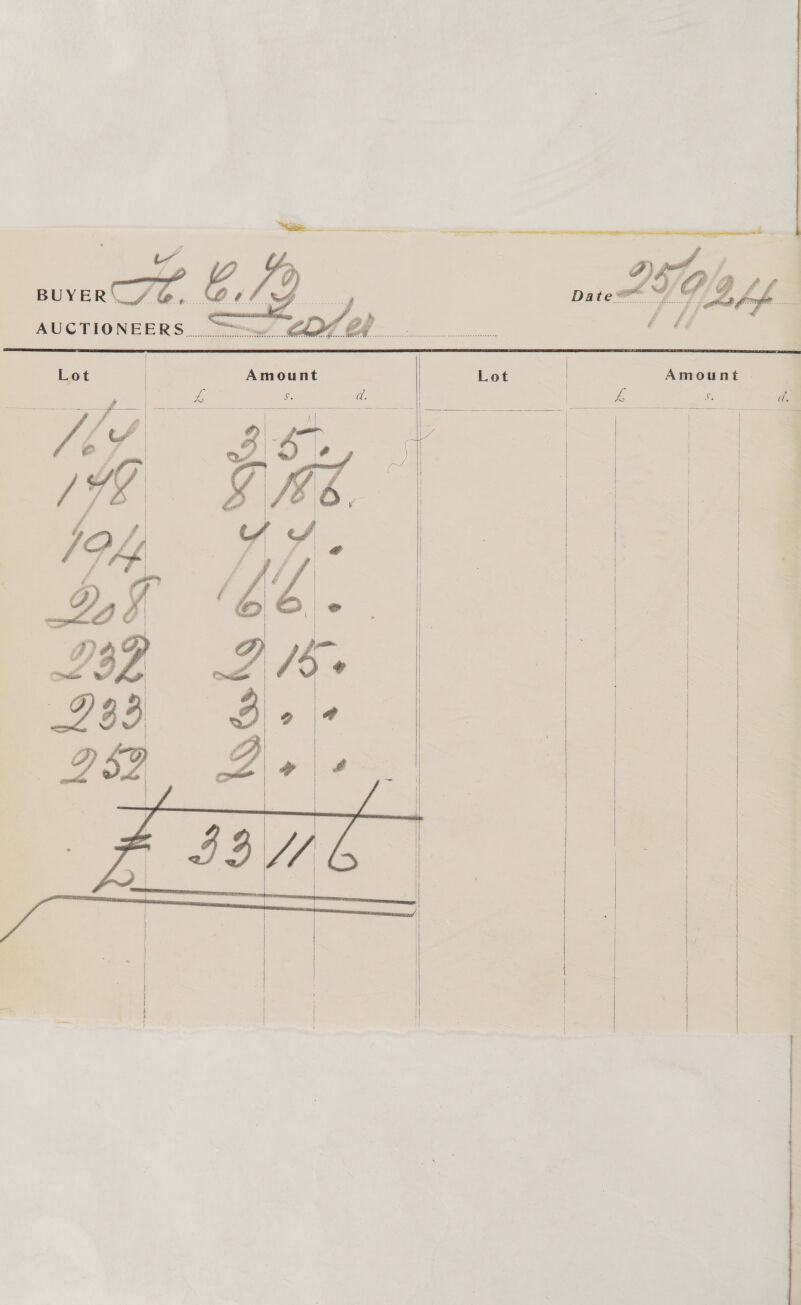 BUYER Date 25/9/24
AUCTIONEERS Foster
Lot Amount Lot Amount
£ s. d. £ s. d.
167 3 5 .
178 8 18 6.
194 7 7 .
208 6 6 .
232 2 15 .
233 3 . .
252 2 . .
£ 33 11 6